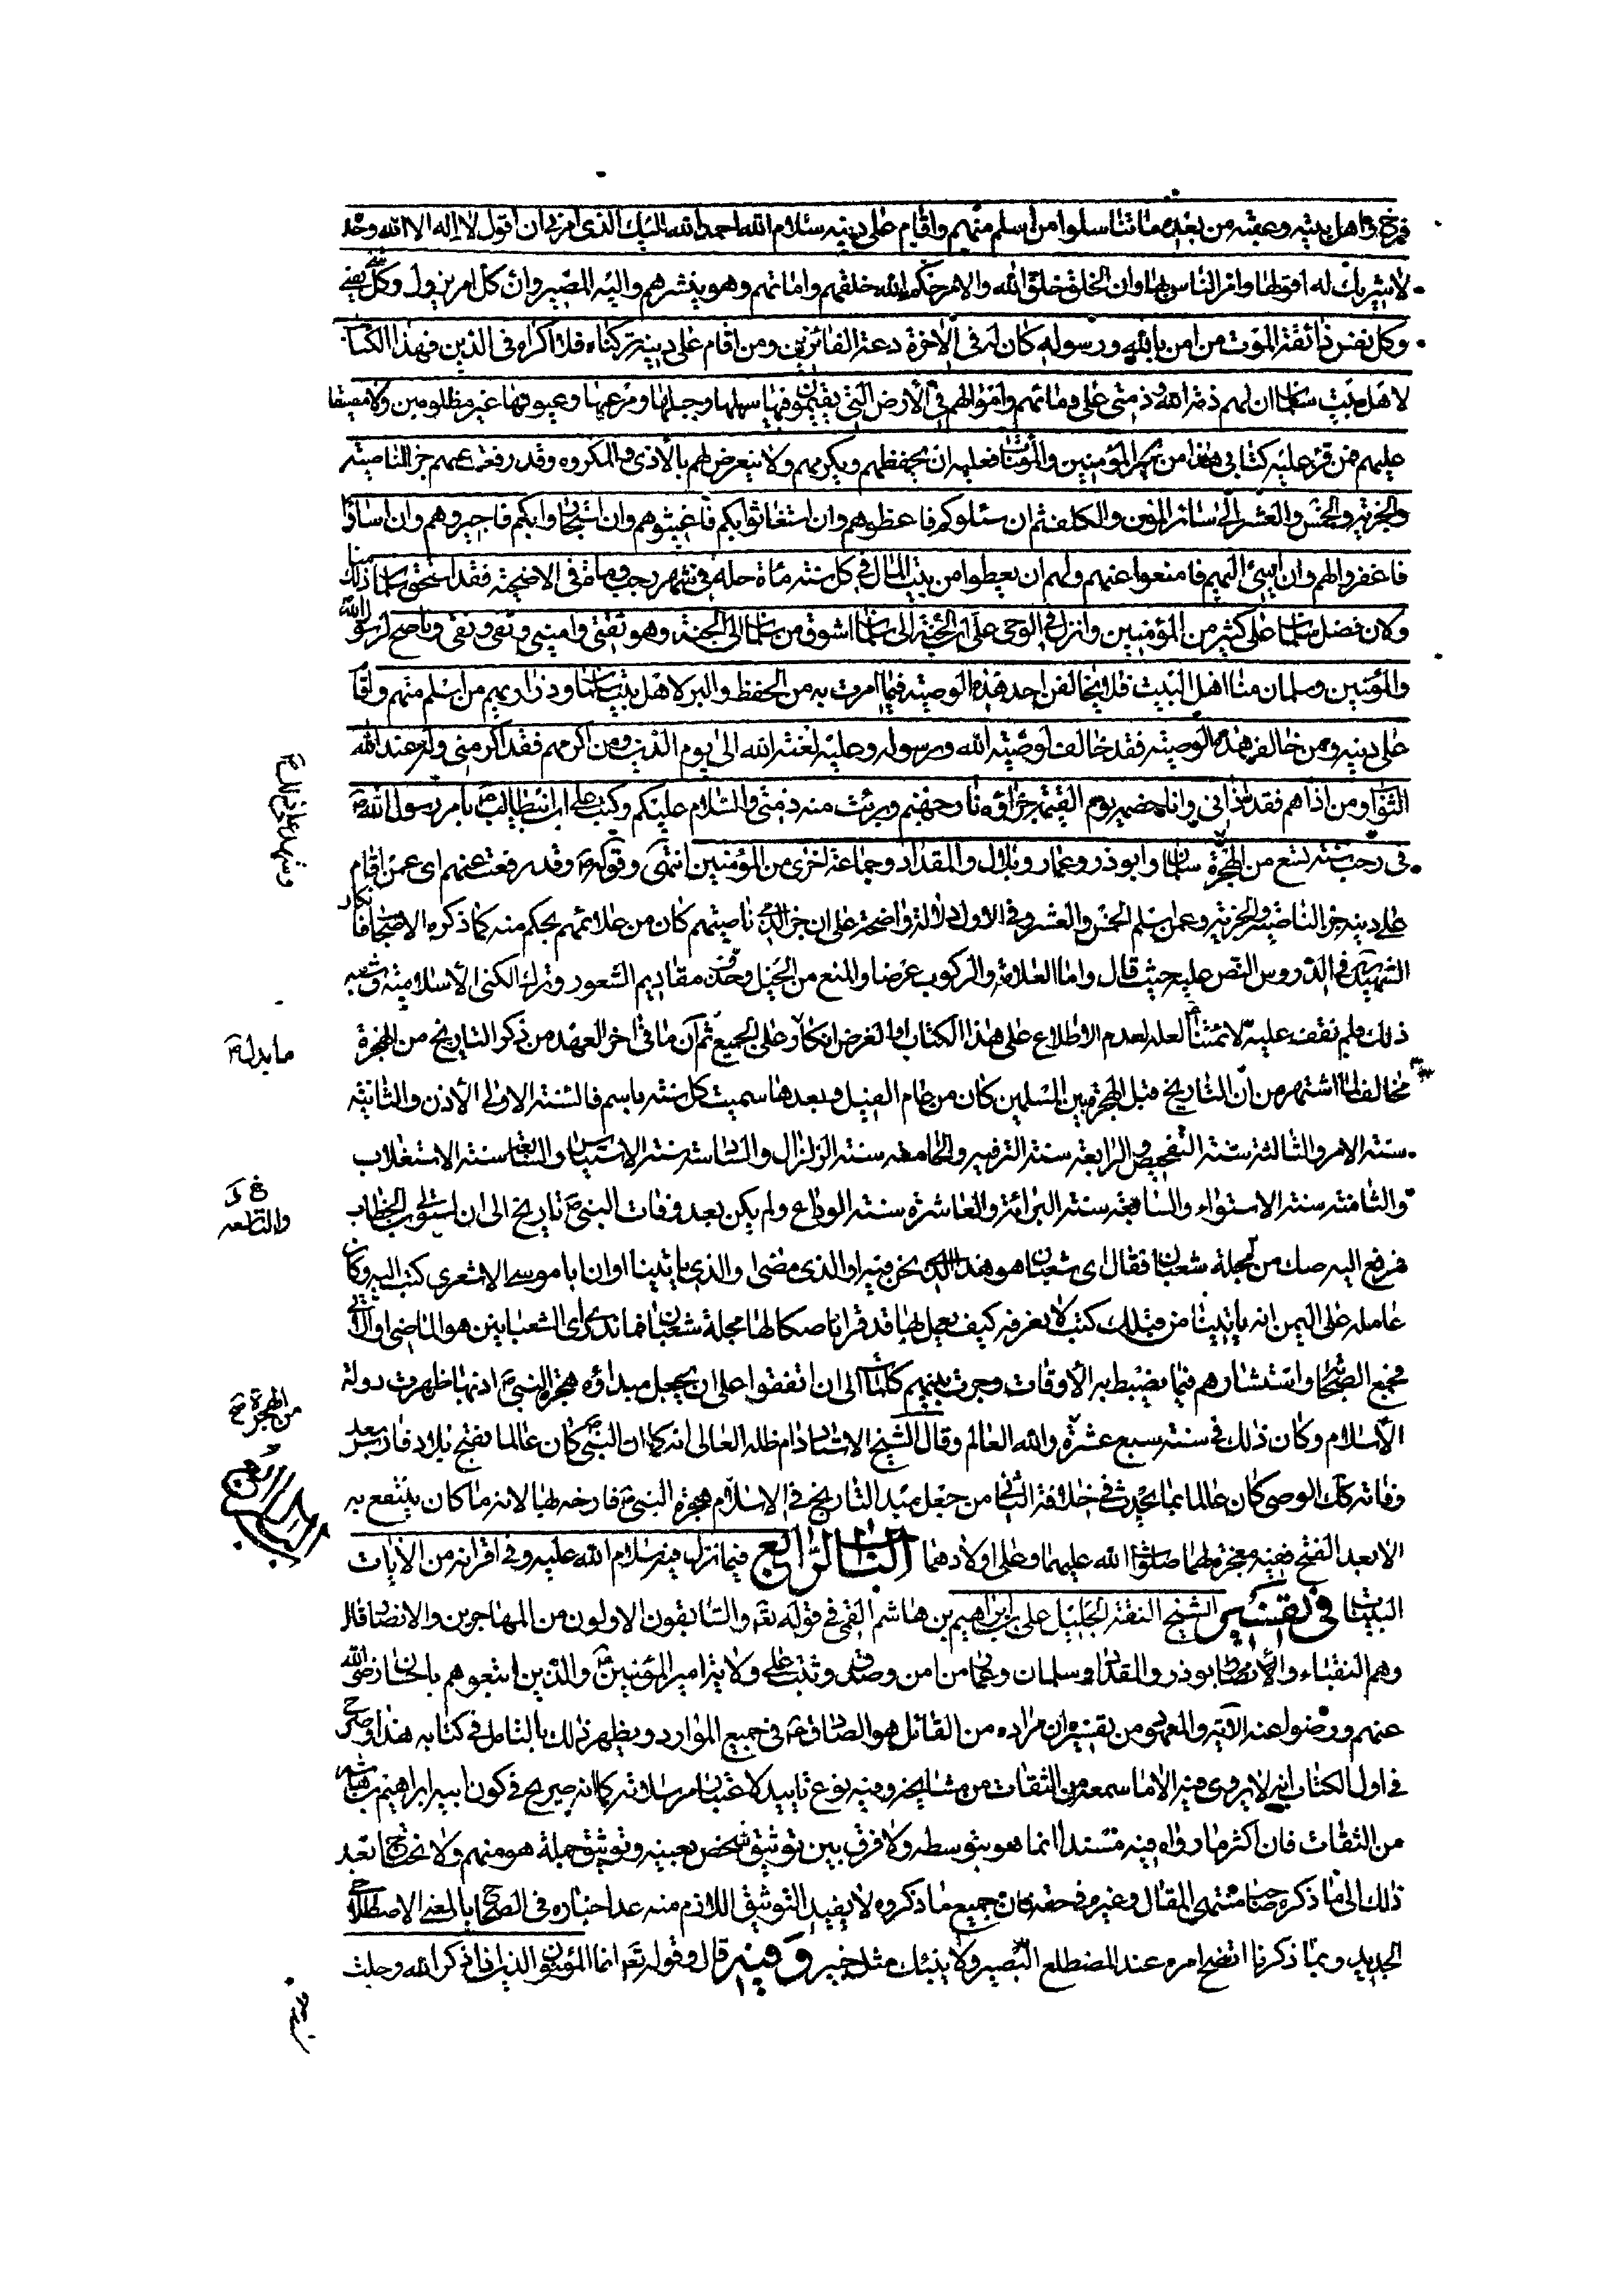 فرخ واهل بيته وعقبه من بعده ما تناسلوا من اسلم منهم واقام على دينه سلام الله احمد الله اليك الذى امرنى ان اقول لا اله الا الله وحده
لا شريك له اقولها وامر الناس بها وان الخلق خلق الله والامر كله لله خلقهم واماتهم وهو ينشرهم واليه المصير وان كل امر يزول وكل شئ يفنى
وكل نفس ذائقة الموت من امن بالله ورسوله كان له فى الاخرة دعة الفائزين ومن اقام على دينه تركناه فلا اكراه فى الدين فهذا الكتاب
لاهل بيت سلمان ان لهم ذمة الله وذمتى على دمائهم واموالهم فى الارض التى يقيمون فيها سهلها وجبلها ومرعيها وعيونها غير مظلومين ولا مضيقا
عليهم فمن قرء عليه كتابى هذا من المؤمنين والمؤمنات فعليه ان يحفظهم ويكرمهم ولا يتعرض لهم بالاذى والمكروه وقد رفعت عنهم جز الناصية
والجزية والخمس والعشر الى سائر المؤن والكلف ثم ان سئلوكم فاعطوهم وان استغاثوا بكم فاغيثوهم وان استجاروا بكم فاجيروهم وان اساؤا
فاغفروا لهم وان اسئ اليهم فامنعوا عنهم ولهم ان يعطوا من بيت المال فى كل سنة مأة حلة فى شهر رجب ومأة فى الاضحية فقد استحق سلمان ذلك منا
ولان فضل سلمان على كثير من المؤمنين وانزل فى الوحى على ان الجنة الى سلمان اشوق من سلمان الى الجنة وهو ثقتى وامينى وتقى ونقى وناصح لرسول الله
والمؤمنين وسلمان منا اهل البيت فلا يخالفن احد هذه الوصية فيما امرت به من الحفظ والبر لاهل بيت سلمان وذراريهم من اسلم منهم واقام
على دينه ومن خالف هذه الوصية فقد خالف لوصية الله ورسوله وعليه لعنة الله الى يوم الدين ومن اكرمهم فقد اكرمنى وله عند الله
الثواب ومن اذاهم فقد اذانى وانا خصمه يوم القيمة جزاؤه نار جهنم وبرئت منه ذمتى والسلام عليكم وكتب على ابن ابيطالب بامر رسول الله ص
فى رجب سنة تسع من الهجرة سلمان وابو ذر وعمار وبلال والمقداد وجماعة اخرى من المؤمنين انتهى وقوله ص وقد رفعت عنهم اى عمن اقام
على دينه جز الناصية والجزية وعمن اسلم الخمس والعشر وفى الاول دلالة واضحة على ان جز ناصيتهم كان من علائمهم بحكم منه كما ذكره الاصحاب فانكار
الشهيد فى الدروس النص عليه حيث قال واما العلامة والركوب عرضا والمنع من الخيل وحذف مقاديم الشعور وترك الكنى الاسلامية وشبه
ذلك فلم نقف عليه لائمتنا لعله لعدم الاطلاع على هذا الكتاب او لغرض انكاره على الجميع ثم ان ما فى اخر العهد من ذكر التاريخ من الهجرة
مخالف لما اشتهر من ان التاريخ قبل الهجرة بين المسلمين كان من عام الفيل وبعدها سميت كل سنة باسم فالسنة الاولى الاذن والثانية
سنة الامر والثالثة سنة التمحيص والرابعة سنة الترفيه والخامسة سنة الزلزال والسادسة سنة الاستيناس والسابعة سنة الاستغلاب
والثامنة سنة الاستواء والتاسعة سنة البرائة والعاشرة سنة الوداع ولم يكن بعد وفات النبى ص تاريخ الى ان استولى ابن الخطاب
فرفع اليه صك من محله شعبان فقال اى شعبان هو هذا الذى نحن فيه او الذى مضى او الذى ياتينا او ان ابا موسى الاشعرى كتب اليه وكان
عامله على اليمن انه ياتينا من قبلك كتب لا نعرفه كيف يعمل بها قد قرانا صكا لها محله شعبان فما ندرى اى الشعبانين هو الماضى او الاتى
فجمع الصحابة واستشارهم فيما يضبط به الاوقات وجرت بينهم كلمات الى ان اتفقوا على ان يجعل مبداؤه هجرة النبى ص اذ بها ظهرت دولة
الاسلام وكان ذلك فى سنة سبع عشرة والله العالم وقال الشيخ الاستاد دام ظله العالى انه كما ان النبى ص كان عالما بفتح بلاد فارس بعد
وفاته كك الوصى كان عالما بما يحدث فى خلافة الثانى من جعل مبدء التاريخ فى الاسلام هجرة النبى ص فارخه بها لانه ما كان ينتفع به
الا بعد الفتح ففيه معجزة لهما صلوات الله عليهما وعلى اولادهما الباب الرابع فيما نزل فيه سلام الله عليه وفى اقرانه من الايات
البينات فى تفسير الشيخ الثقة الجليل على بن ابراهيم بن هاشم القمى فى قوله تعـ والسابقون الاولون من المهاجرين والانصار قال
وهم النقباء والانصار ابو ذر والمقداد وسلمان وعمار من امن وصدق وثبت على ولاية امير المؤمنين ع والذين اتبعوهم باحسان رضى الله
عنهم ورضوا عنه الاية والمعهود من تفسيره ان مراده من القائل هو الصادق ع فى جميع الموارد ويظهر ذلك بالتامل فى كتابه هذا وصرح
فى اول الكتاب انه لا يروى فيه الا ما سمعه من الثقات من مشايخه وفيه نوع تاييد لاعتبار مرسلاته كما انه صريح فى كون ابيه ابراهيم بن هاشم
من الثقات فان اكثر ما رواه فيه مسندا انما هو بتوسطه ولا فرق بين توثيق شخص بعينه وتوثيق جملة هو منهم ولا نحتاج بعد
ذلك الى ما ذكره صاحب منتهى المقال وغيره فى حقه فان جميع ما ذكروه لا يفيد التوثيق اللازم منه عد اخباره فى الصحاح بالمعنى الاصطلاحى
الجديد وبما ذكرنا اتضح امره عند المضطلع البصير ولا ينبئك مثل خبير وفيه قال وقوله تعـ انما المؤمنون الذين اذا ذكر الله وجلت
وشهد على ذلك
ما بدل
والتاسعة
من الهجرة
الباب الرابع